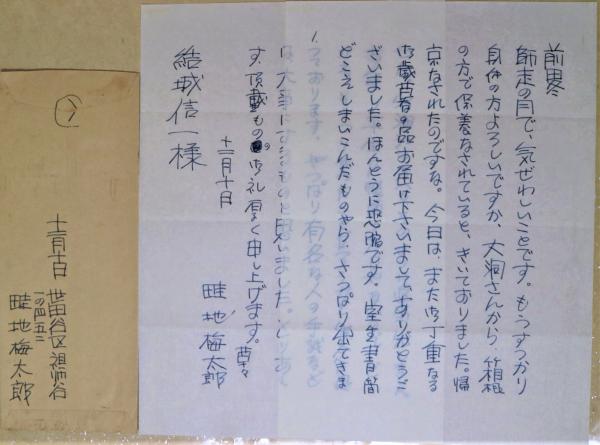 前略
師走の月で、気ぜわしいことです。もうすつかり
身体の方よろしいですか、大洞さんから、箱根
の方で保養なされていると、きいておりました。帰
京なされたのですな。今日は、また御丁重なる
御歳暮の品お届け下さいまして、ありがとうご
ざいました。ほんとうに恐縮です。室生書簡
どこえしまいこんだものやら、さつぱり出てきま
つております、やつぱり有名な人の手紙など
は大事にすべきものと思いました。とりあ
す、頂戴ものの御礼厚く申し上げます。草々
十二月十日
畦地梅太郎
結城信一様
十二月十日
世田谷区祖師谷
一の四五二
畦地梅太郎